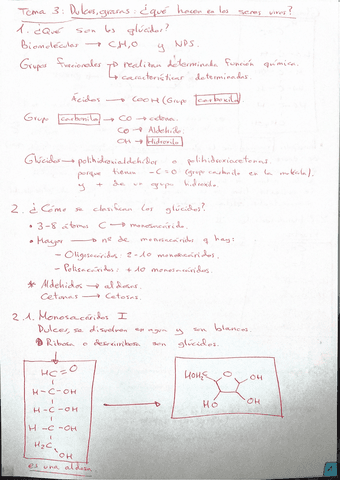 Tema 3: Dulces, grasas: ¿qué hacen en los seres vivos?
1. ¿Qué son los glúcidos?
Biomoléculas → C,H,O y NPS.
Grupos funcionales → realizan determinada función química.
→ características determinadas.
Ácidos → COOH (Grupo carboxilo
Grupo carbonilo → CO → cetona.
CO → Aldehído.
OH → Hidroxilo
Glúcidos → polihidroxialdehídos o polihidroxicetonas
porque tienen -C=O (grupo carbonilo en la molécula).
y + de un grupo hidroxilo.
2. ¿Cómo se clasifican los glúcidos?
• 3-8 átomos C → monosacárido.
• Mayor → nº de monosacáridos q hay:
- Oligosacáridos: 2-10 monosacáridos.
- Polisacáridos: +10 monosacáridos.
* Aldehídos → aldosas.
Cetonas → Cetosas.
2.1. Monosacáridos I
Dulces, se disuelven en agua y son blancos.
Ribosa o desoxirribosa son glúcidos.
HC=O
H-C-OH
H-C-OH
H-C-OH
H₂C
OH
es una aldosa
HOH₂C O OH
HO OH
1